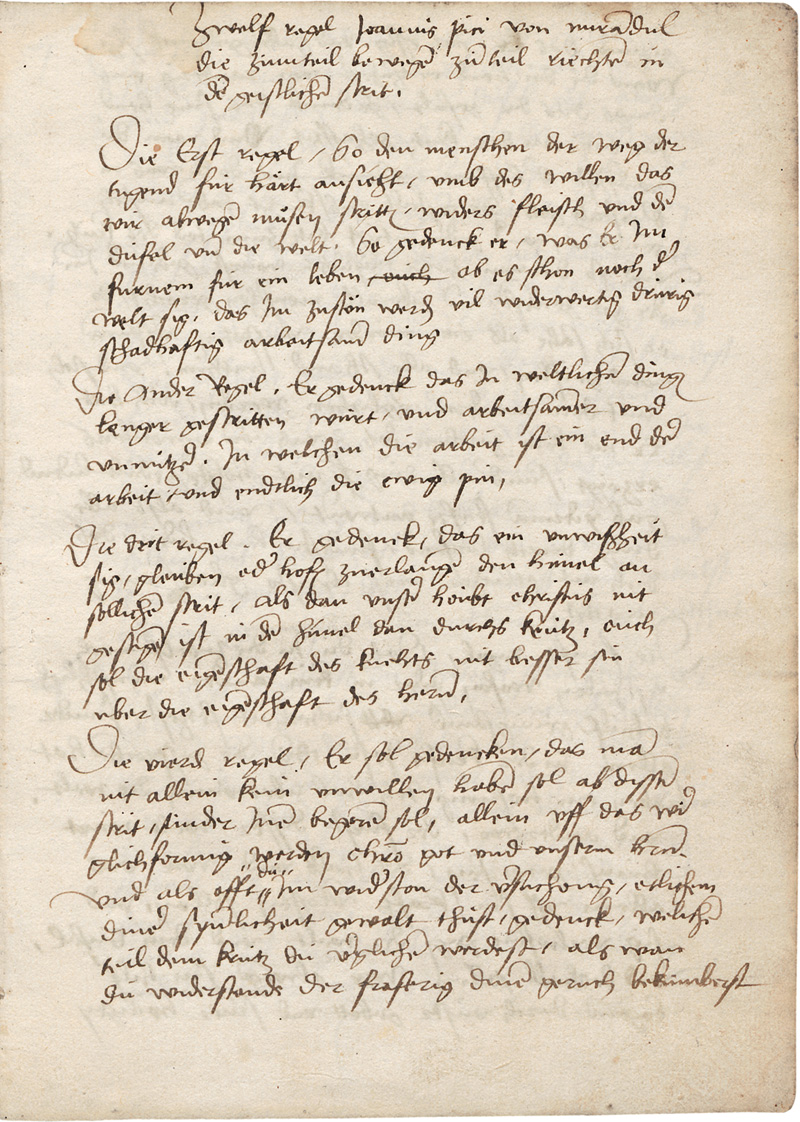 Zwelf regel Joannis pici von mirādul
die zumteil bewegē zūteil riechtē in
dē geistlichē strit.
Die Erst regel / So den menschen der weg der
tugend für härt ansieht / umb des willen das
wir alwegē müsen / widers fleisch und dē
düfel uñ die welt. So gedenck er / was Er Im
furnem für ein leben / ouch ob es schon noch dʼ
welt sig, das Im zustōn werdē vil widerwertig drurig
schadhaftig arbeitsam ding
Die Ander Regel. Er gedenck das In weltlichē dingē
langer gestritten würt / und arbeitsamer und
unnützer. In welchen die arbeit ist ein end der
arbeit / und endtlich die ewig pin,
Die drit regel. Er gedenck, das ein unwißheit
sig, glouben edʼ hofē zuerlangē den himel an
sollichē strit, als dan unser houbt christus nit
gestigē ist in dē himel dan durchs krütz, ouch
sol die eigēschaft des knechts nit besser sin
uber die eigēschaft des herrē,
Die vierd regel, Er sol gedencken, das mā
nit allein kein unwillen habē sol ab dissē
strit, sunder Inē begerē sol, allein uff das wir
glichformig werden chrō got und unserm hern.
Und als offt du Im widʼston der vʼsuchong, etlichem
dinē synlicheit gewalt thüst, gedenck, welichē
teil dem krütz du vʼglichē werdest, als wan
du widerstande der fraserig dinē geruch bekümberst